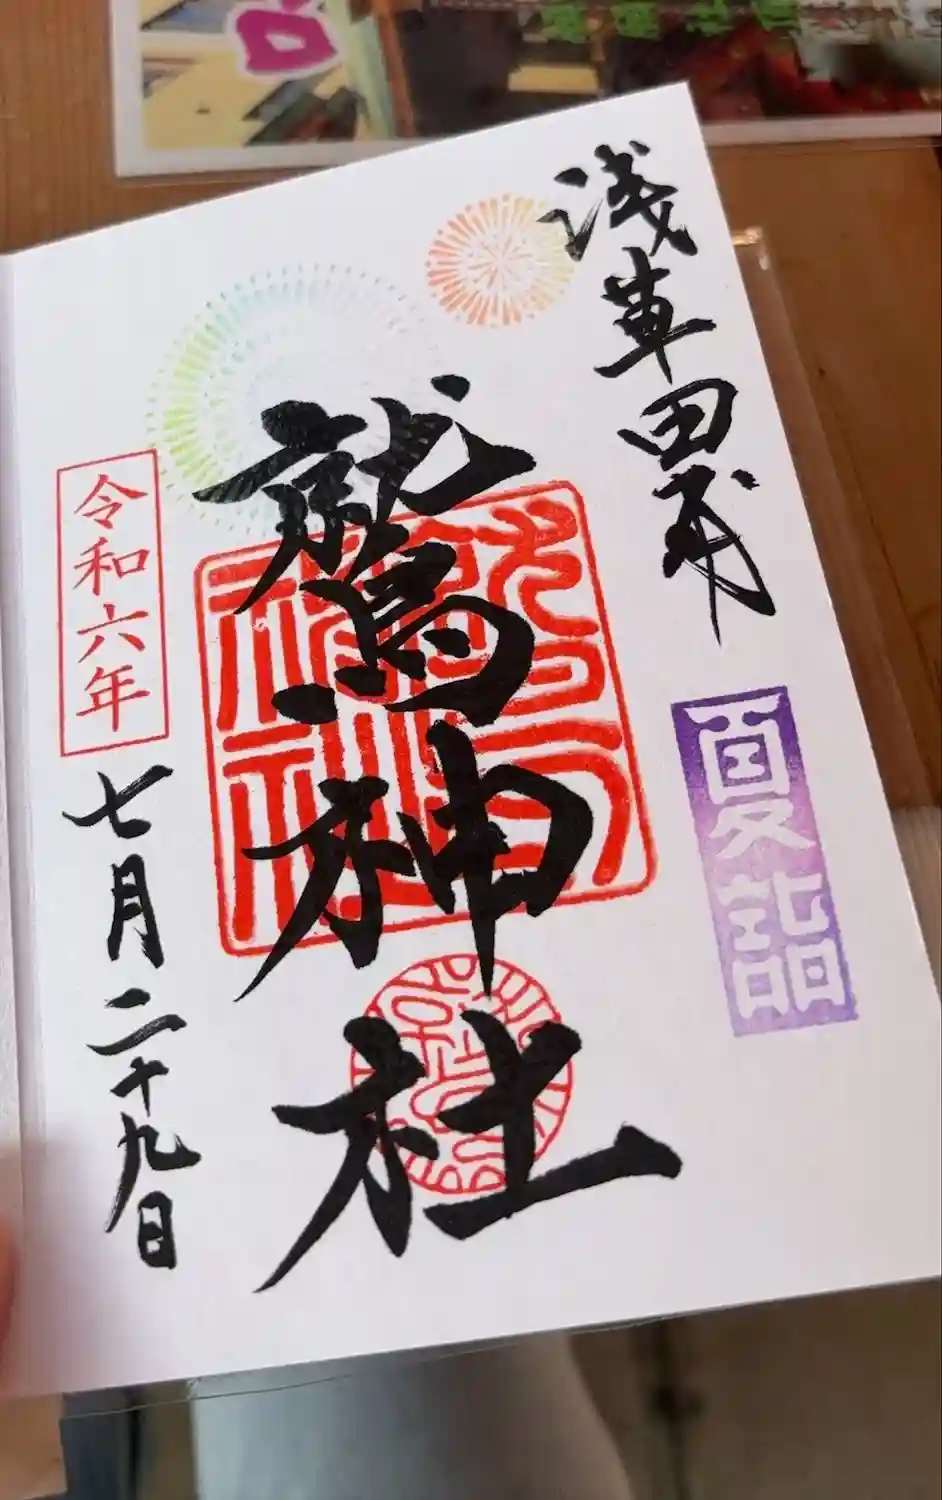 浅草田甫
夏詣
鷲神社
令和六年
七月二十九日